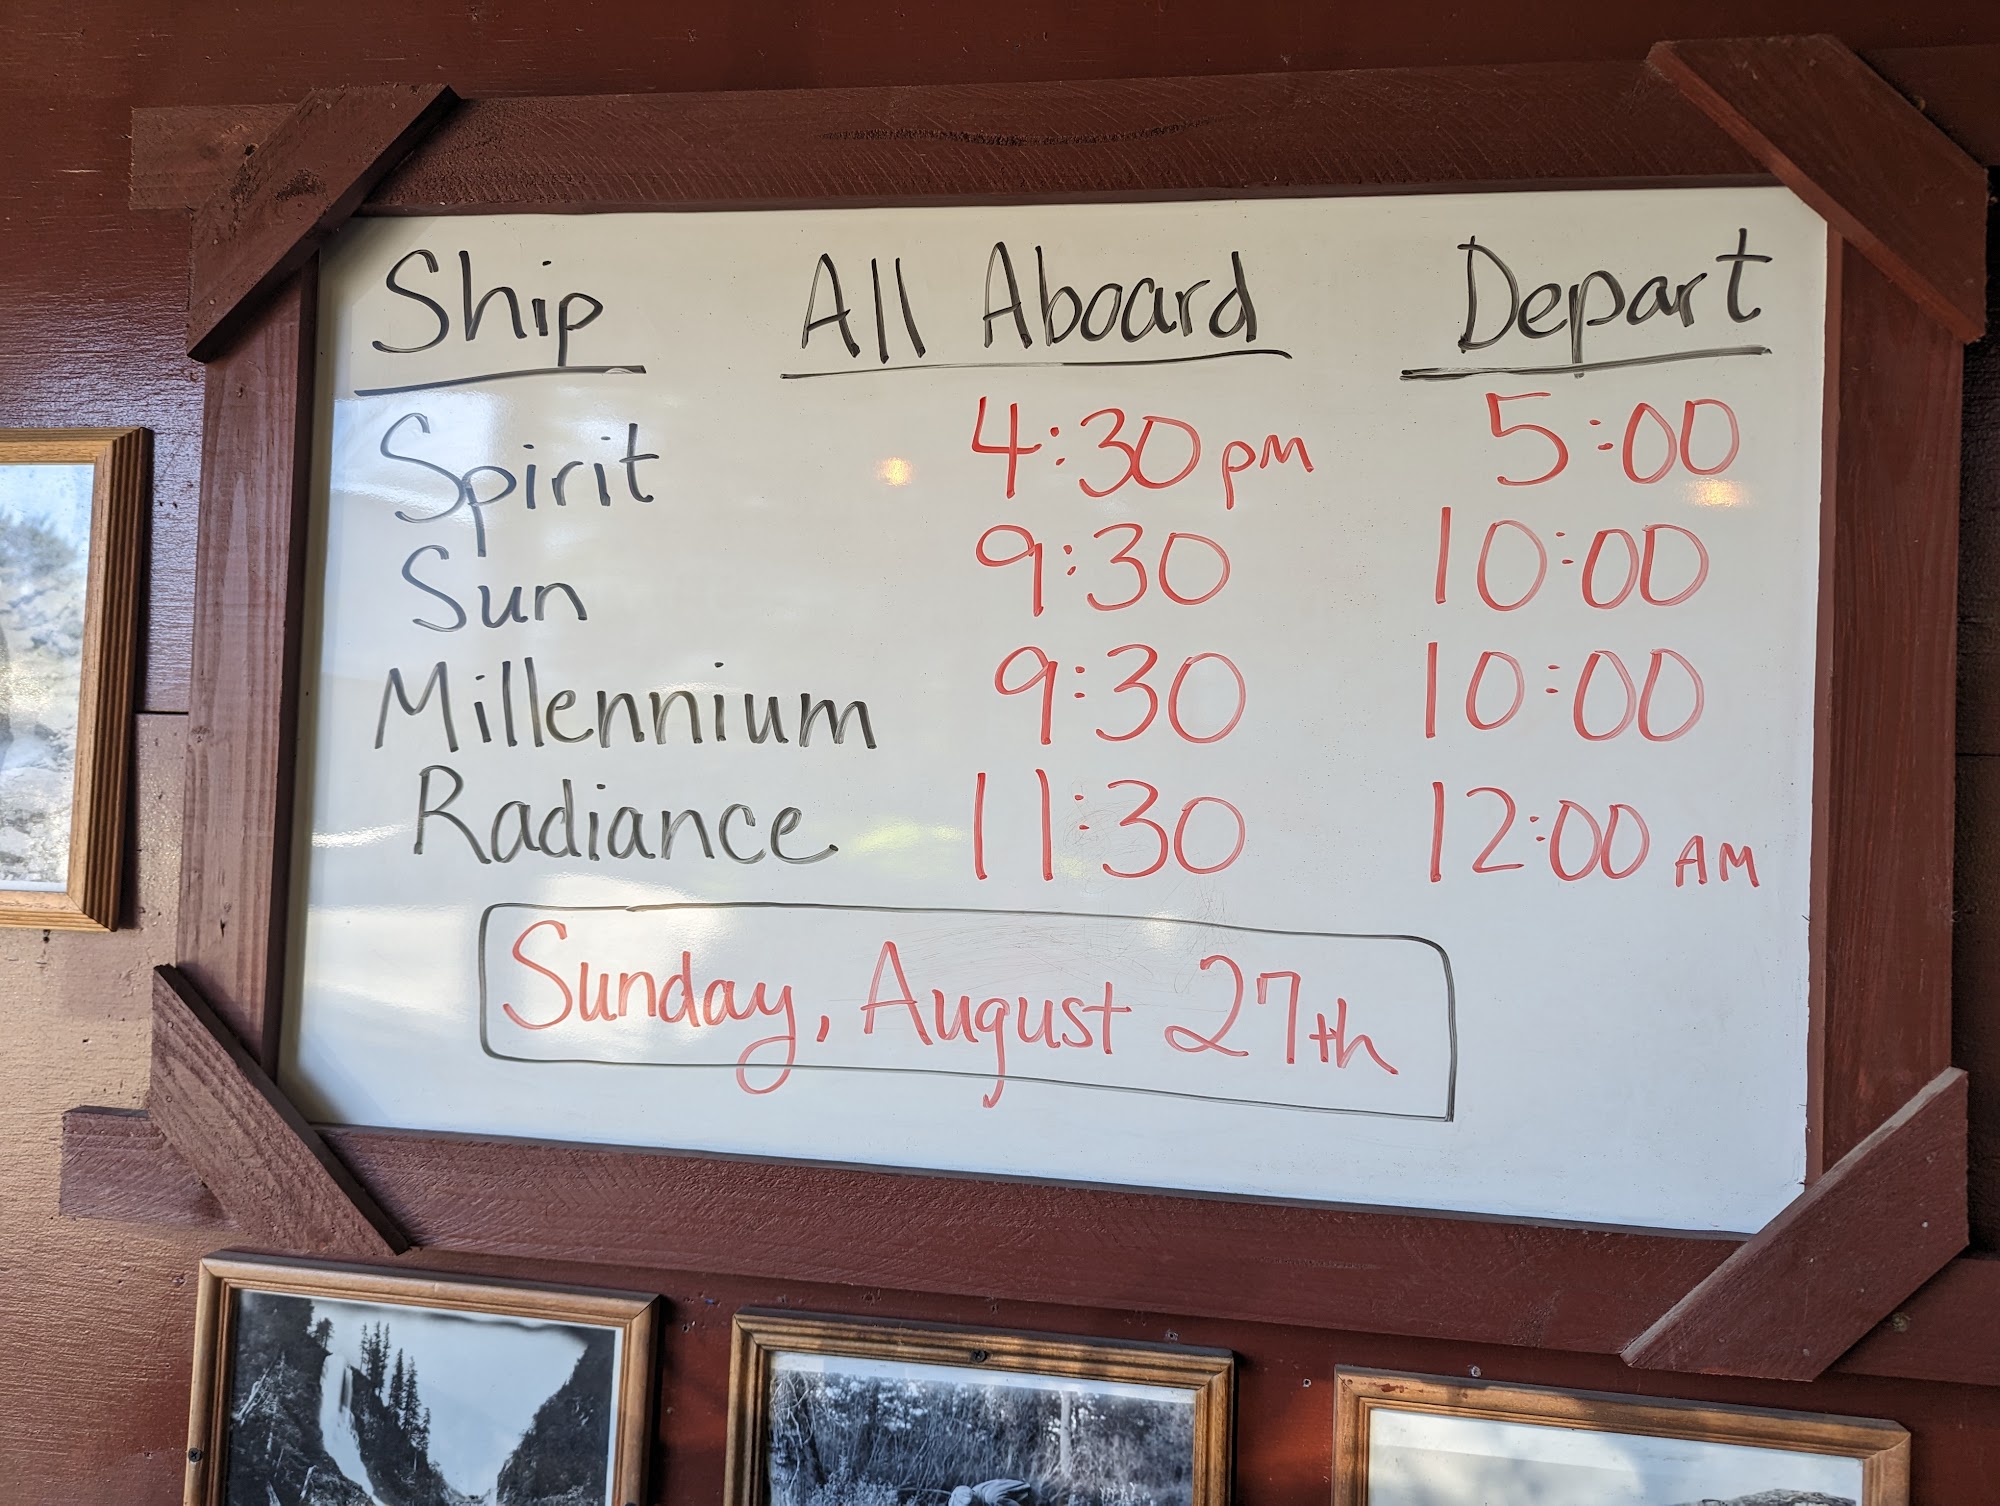 Ship All Aboard Depart
Spirit 4:30 pm 5:00
Sun 9:30 10:00
Millennium 9:30 10:00
Radiance 11:30 12:00 AM
Sunday, August 27th